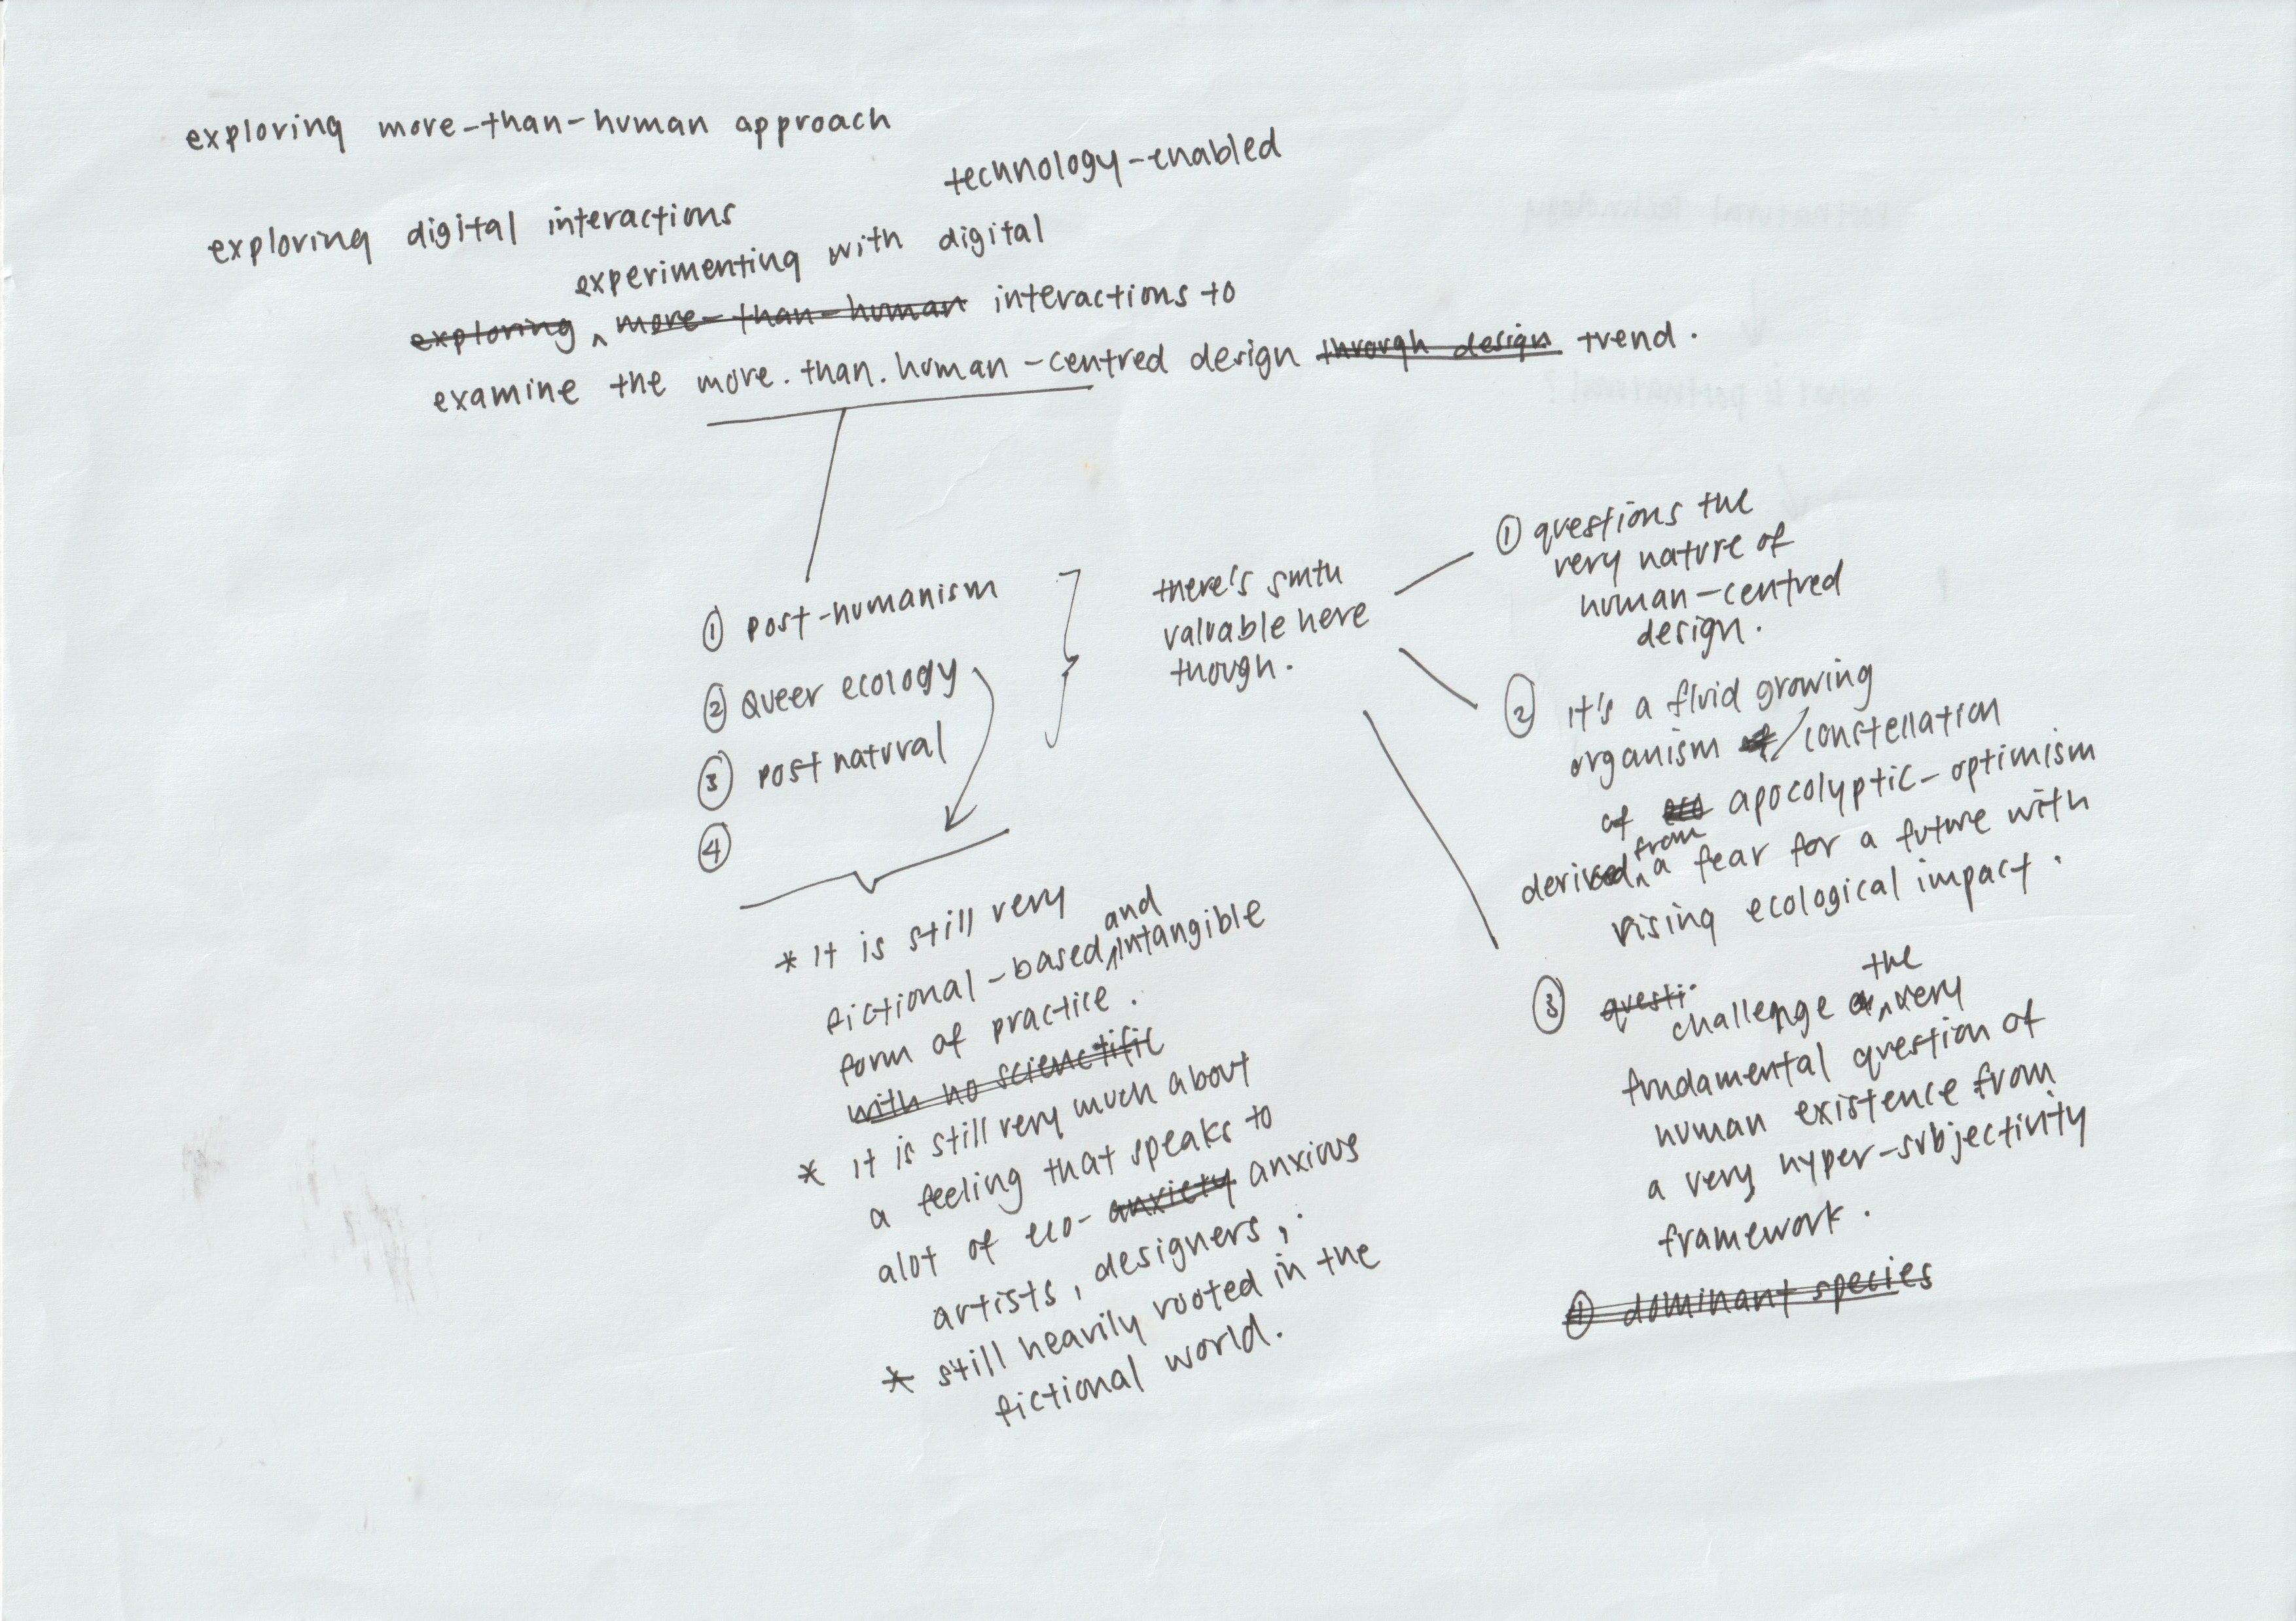 exploring more-than-human approach
technology-enabled
exploring digital interactions
experimenting with digital
exploring ^ more-than-human interactions to
examine the more.than.human-centred design through design trend.
① post-humanism
② Queer ecology
③ post natural
④
there's smth
valuable here
though.
① questions the
very nature of
human-centred
design.
② it's a fluid growing
organism / constellation
of eco apocolyptic-optimism
from
derived ^ a fear for a future with
rising ecological impact.
the
③ questi.
challenge ^ very
fundamental question of
human existence from
a very hyper-subjectivity
framework.
④ dominant species
* It is still very
and
fictional-based ^ intangible
form of practice.
with no scienctific
* it is still very much about
a feeling that speaks to
alot of eco-anxiety anxious
artists, designers,
* still heavily rooted in the
fictional world.
postnatural technology
what is postnatural?